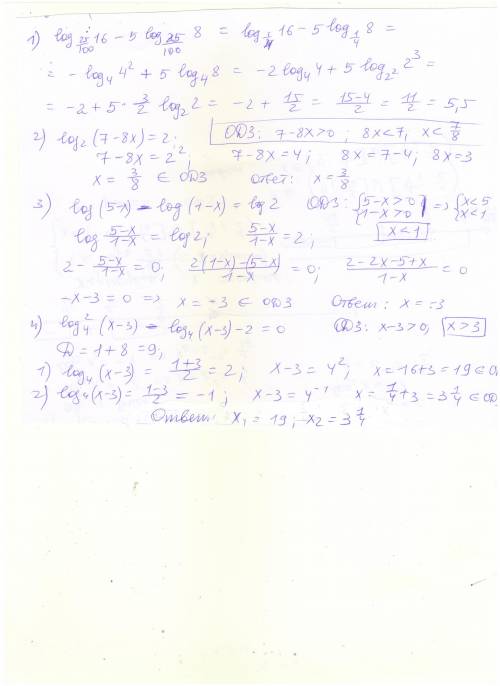 1) log_{25/100} 16 - 5 log_{25/100} 8 = log_{1/4} 16 - 5 log_{1/4} 8 =
= - log_4 4^2 + 5 log_4 8 = -2 log_4 4 + 5 log_{2^2} 2^3 =
= -2 + 5 · 3/2 log_2 2 = -2 + 15/2 = 15-4/2 = 11/2 = 5,5
2) log_2 (7-8x) = 2. ОДЗ: 7-8x>0; 8x<7, x< 7/8
7-8x = 2^2; 7-8x=4; 8x=7-4; 8x=3
x = 3/8 ∈ ОДЗ ответ: x = 3/8
3) log (5-x) - log (1-x) = log 2 ОДЗ: { 5-x>0 1-x>0 => { x<5 x<1
log 5-x/1-x = log 2; 5-x/1-x = 2; x<1
2 - 5-x/1-x = 0; 2(1-x)-(5-x)/1-x = 0; 2-2x-5+x/1-x = 0
-x-3=0 => x = -3 ∈ ОДЗ Ответ: x = -3
4) log_4^2 (x-3) - log_4 (x-3) - 2 = 0 ОДЗ: x-3>0, x>3
D = 1+8 = 9;
1) log_4 (x-3) = 1+3/2 = 2; x-3 = 4^2; x = 16+3 = 19 ∈ О
2) log_4 (x-3) = 1-3/2 = -1; x-3 = 4^{-1} x = 1/4 + 3 = 3 1/4 ∈ ОД
Ответ: x_1 = 19; x_2 = 3 1/4